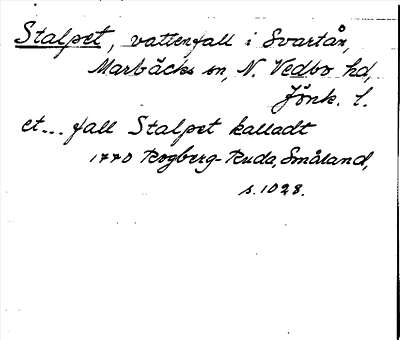 Stalpet, vattenfall i Svartån,
Marbäcks sn, N. Vedbo hd,
Jönk. l.
et... fall Stalpet kalladt
1770 Rogberg-Ruda, Småland,
s. 1028.